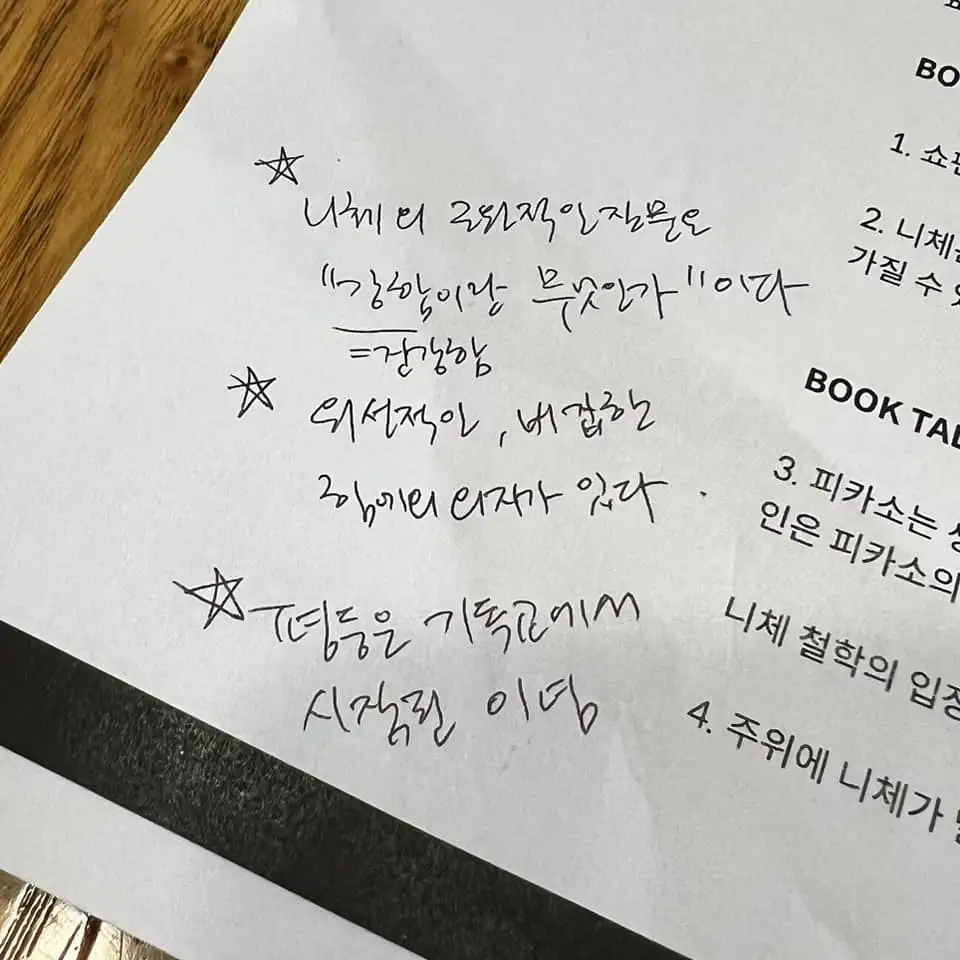 BO
1. 쇼
2. 니체
가질 수
☆
니체의 근원적인 질문은
"강함이란 무엇인가"이다
=건강함
☆ 위선적인, 비겁한
힘에의 의지가 있다.
☆ 평등은 기독교에서
시작된 이념
BOOK TAL
3. 피카소는
인은 피카소의
니체 철학의 입장
4. 주위에 니체가